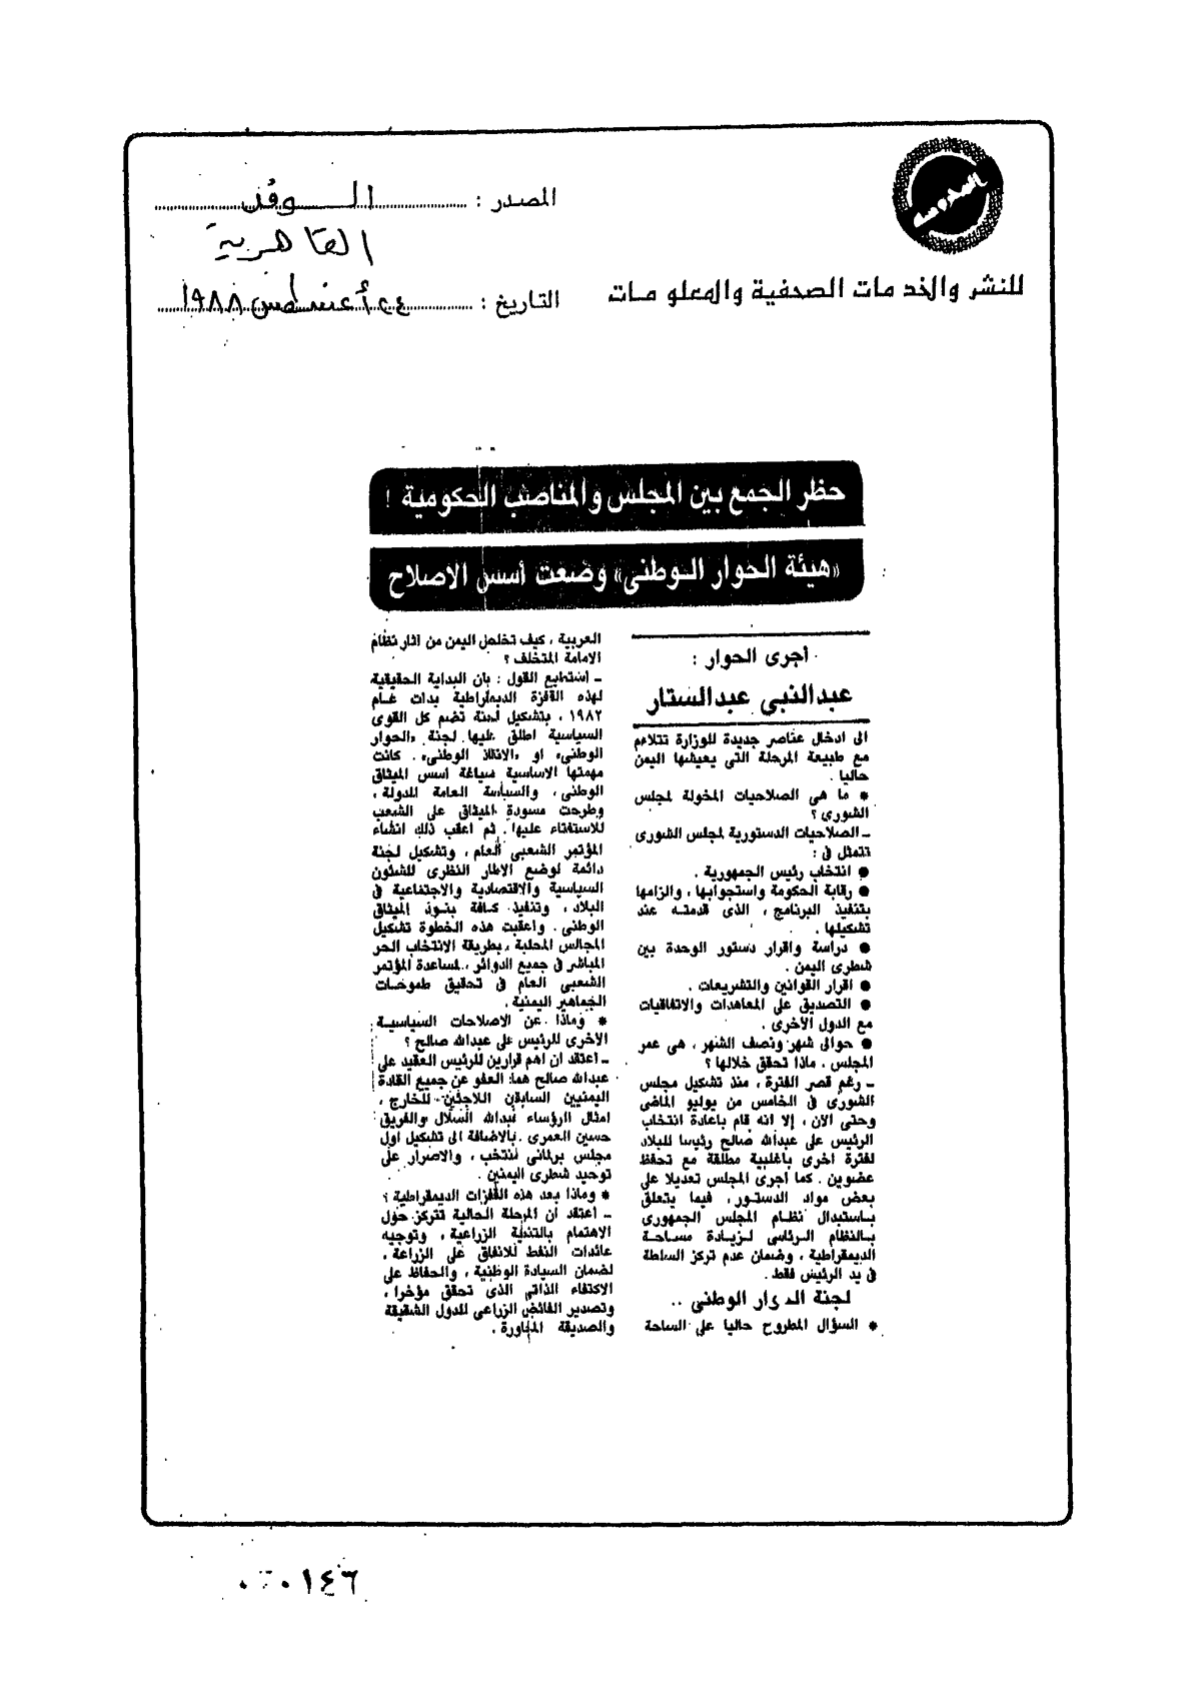 المصدر : الوفد
القاهرية
التاريخ : ٢٤ أغسطس ١٩٨٨
للنشر والخدمات الصحفية والمعلومات
حظر الجمع بين المجلس والمناصب الحكومية !
«هيئة الحوار الوطنى» وضعت أسس الاصلاح
أجرى الحوار :
عبدالنبى عبدالستار
الى ادخال عناصر جديدة للوزارة تتلاءم
مع طبيعة المرحلة التى يعيشها اليمن
حاليا .
* ما هى الصلاحيات المخولة لمجلس
الشورى ؟
ـ الصلاحيات الدستورية لمجلس الشورى
تتمثل فى :
● انتخاب رئيس الجمهورية .
● رقابة الحكومة واستجوابها ، والزامها
بتنفيذ البرنامج ، الذى قدمته عند
تشكيلها .
● دراسة واقرار دستور الوحدة بين
شطرى اليمن .
● اقرار القوانين والتشريعات .
● التصديق على المعاهدات والاتفاقيات
مع الدول الأخرى .
● حوالى شهر ونصف الشهر ، هى عمر
المجلس ، ماذا تحقق خلالها ؟
ـ رغم قصر الفترة ، منذ تشكيل مجلس
الشورى فى الخامس من يوليو الماضى
وحتى الآن ، إلا انه قام باعادة انتخاب
الرئيس على عبدالله صالح رئيسا للبلاد
لفترة اخرى باغلبية مطلقة مع تحفظ
عضوين . كما اجرى المجلس تعديلا على
بعض مواد الدستور ، فيما يتعلق
باستبدال نظام المجلس الجمهورى
بالنظام الرئاسى لزيادة مساحة
الديمقراطية ، وضمان عدم تركز السلطة
فى يد الرئيس فقط .
لجنة الحوار الوطنى ..
* السؤال المطروح حاليا على الساحة
العربية ، كيف تخلص اليمن من اثار نظام
الامامة المتخلف ؟
ـ استطيع القول : بأن البداية الحقيقية
لهذه القفزة الديمقراطية بدات عام
١٩٨٢ ، بتشكيل لجنة تضم كل القوى
السياسية اطلق عليها لجنة «الحوار
الوطنى» او «الانقاذ الوطنى» . كانت
مهمتها الاساسية صياغة اسس الميثاق
الوطنى ، والسياسة العامة للدولة ،
وطرحت مسودة الميثاق على الشعب
للاستفتاء عليها . ثم اعقب ذلك انشاء
المؤتمر الشعبى العام ، وتشكيل لجنة
دائمة لوضع الاطار النظرى للشئون
السياسية والاقتصادية والاجتماعية فى
البلاد ، وتنفيذ كافة بنود الميثاق
الوطنى . واعقبت هذه الخطوة تشكيل
المجالس المحلية ، بطريقة الانتخاب الحر
المباشر فى جميع الدوائر ، لمساعدة المؤتمر
الشعبى العام فى تحقيق طموحات
الجماهير اليمنية .
* وماذا عن الاصلاحات السياسية
الاخرى للرئيس على عبدالله صالح ؟
ـ اعتقد ان اهم قرارين للرئيس العقيد على
عبدالله صالح هما : العفو عن جميع القادة
اليمنيين السابقين اللاجئين للخارج ،
امثال الرؤساء عبدالله السلال والفريق
حسين العمرى . بالاضافة الى تشكيل اول
مجلس برلمانى منتخب ، والاصرار على
توحيد شطرى اليمنين .
* وماذا بعد هذه القفزات الديمقراطية ؟
ـ اعتقد أن المرحلة الحالية تتركز حول
الاهتمام بالتنمية الزراعية ، وتوجيه
عائدات النفط للانفاق على الزراعة ،
لضمان السيادة الوطنية ، والحفاظ على
الاكتفاء الذاتى الذى تحقق مؤخرا ،
وتصدير الفائض الزراعى للدول الشقيقة
والصديقة المجاورة .